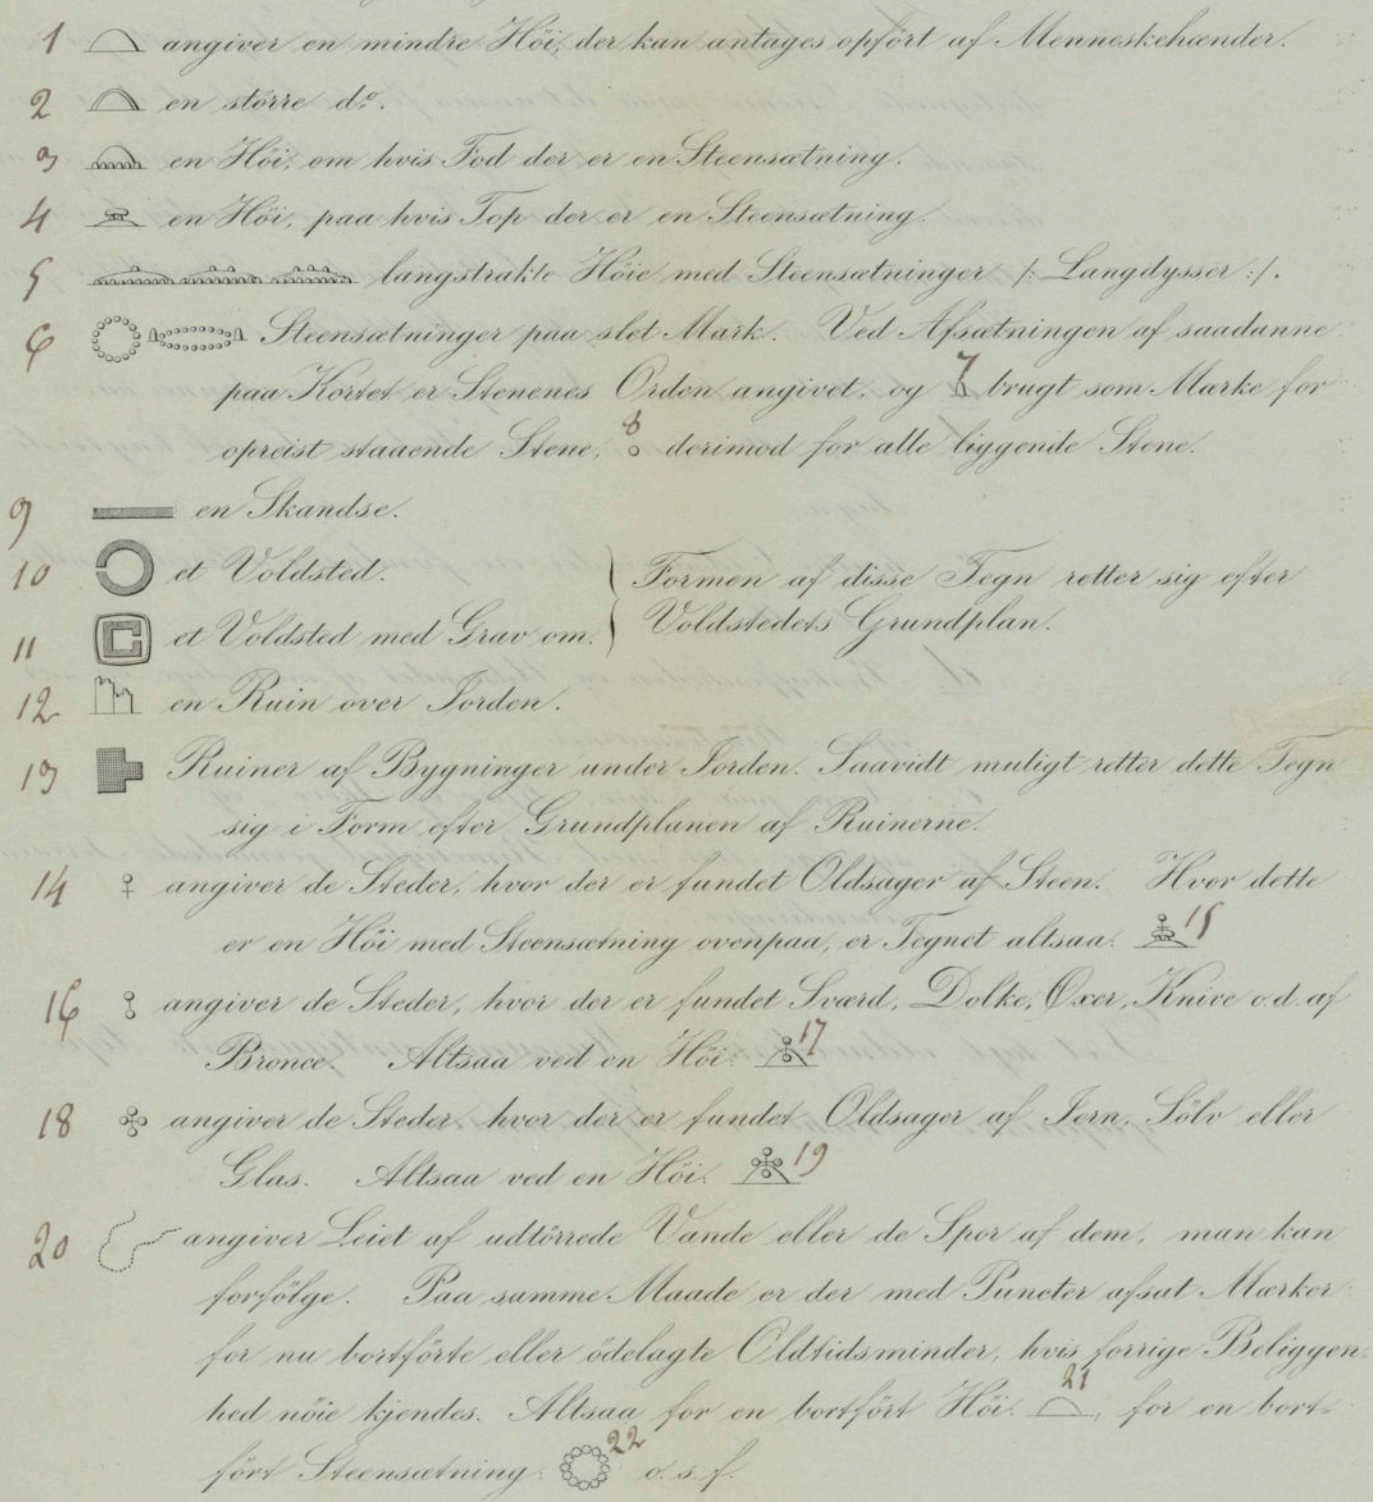 1 angiver en mindre Höi, der kan antages opfört af Menneskehænder.
2 en större do.
3 en Höi, om hvis Fod der er en Steensætning.
4 en Höi, paa hvis Top der er en Steensætning.
5 langstrakte Höie med Steensætninger /: Langdysser :/.
6 Steensætninger paa slet Mark. Ved Afsætningen af saadanne
paa Kortet er Stenenes Orden angivet, og 7 brugt som Mærke for
opreist staaende Stene, 8 derimod for alle liggende Stene.
9 en Skandse.
10 et Voldsted. Formen af disse Tegn retter sig efter
11 et Voldsted med Grav om. Voldstedets Grundplan.
12 en Ruin over Jorden.
13 Ruiner af Bygninger under Jorden. Saavidt muligt retter dette Tegn
sig i Form efter Grundplanen af Ruinerne.
14 angiver de Steder, hvor der er fundet Oldsager af Steen. Hvor dette
er en Höi med Steensætning ovenpaa, er Tegnet altsaa: 15
16 angiver de Steder, hvor der er fundet Sværd, Dolke, Öxer, Knive o.d. af
Bronce. Altsaa ved en Höi: 17
18 angiver de Steder, hvor der er fundet Oldsager af Jern, Sölv eller
Glas. Altsaa ved en Höi: 19
20 angiver Leiet af udtörrede Vande eller de Spor af dem, man kan
forfölge. Paa samme Maade er der med Puncter afsat Mærker
for nu bortförte eller ödelagte Oldtidsminder, hvis forrige Beliggen-
hed nöie kjendes. Altsaa for en bortfört Höi: 21, for en bort-
fört Steensætning: 22 o.s.f.